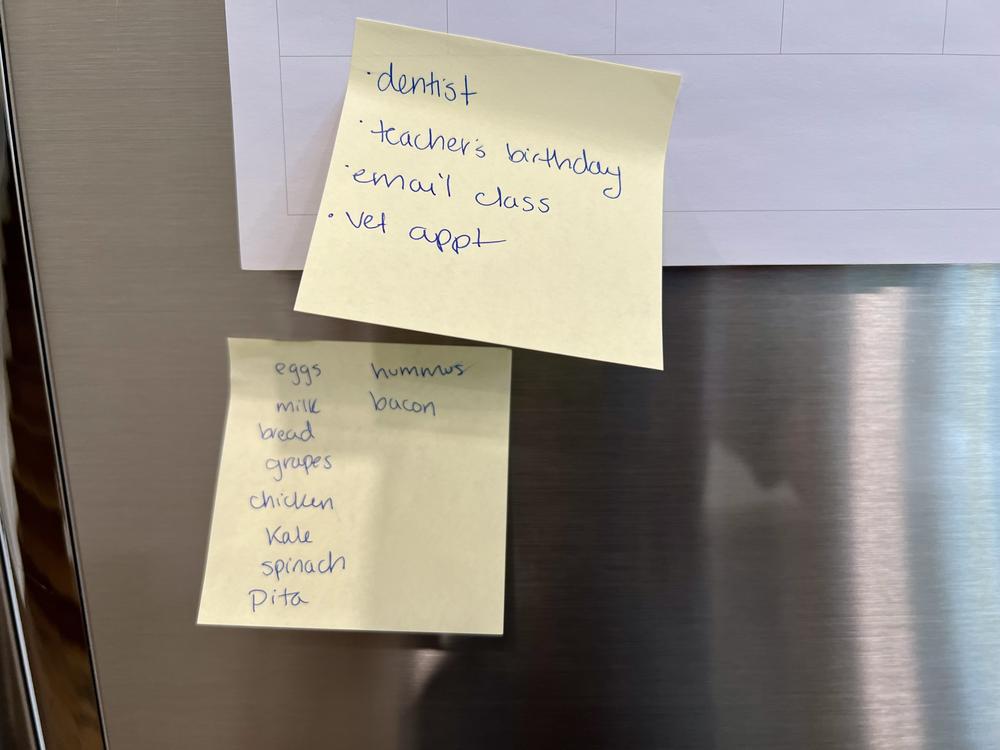 · dentist
· teacher's birthday
· email class
· vet appt
eggs
milk
bread
grapes
chicken
Kale
spinach
Pita
hummus
bacon